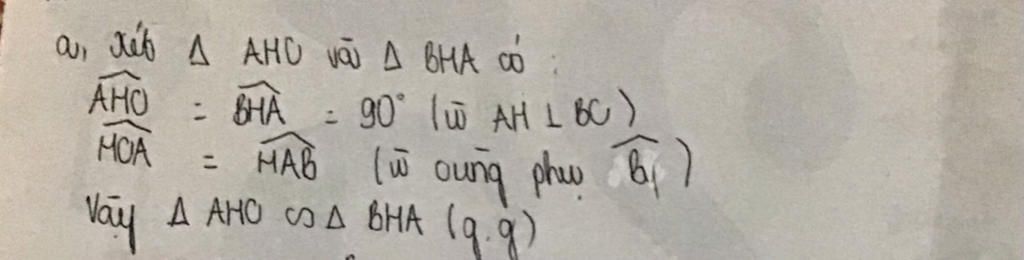 a, Xét Δ AHC và Δ BHA có :
\widehat{AHC} = \widehat{BHA} = 90° (vì AH ⊥ BC)
\widehat{HCA} = \widehat{HAB} (vì cùng phụ \widehat{B_1})
Vậy Δ AHC ∽ Δ BHA (g.g)